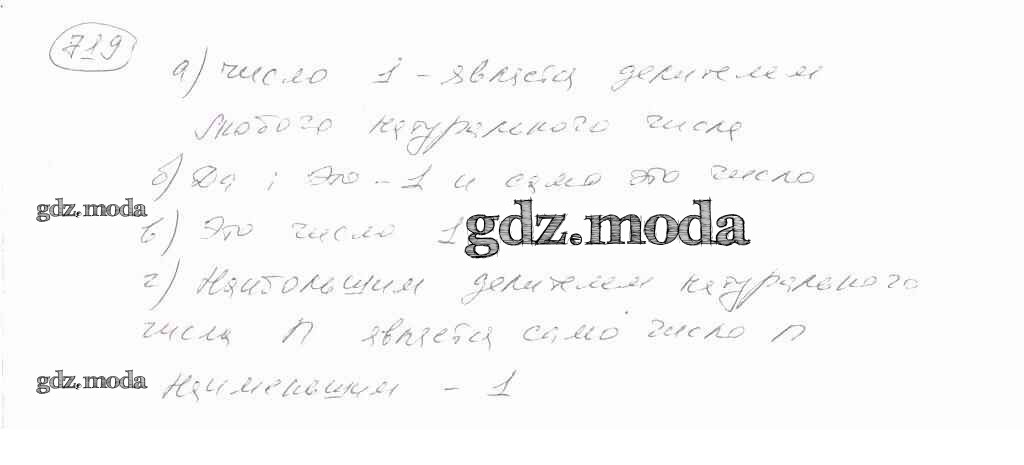 719
а) число 1 - является делителем
любого натурального числа
б) Да; это - 1 и само это число
gdz.moda
в) Это число 1
gdz.moda
г) Наибольшим делителем натурального
числа n является само число n
gdz.moda
Наименьшим - 1